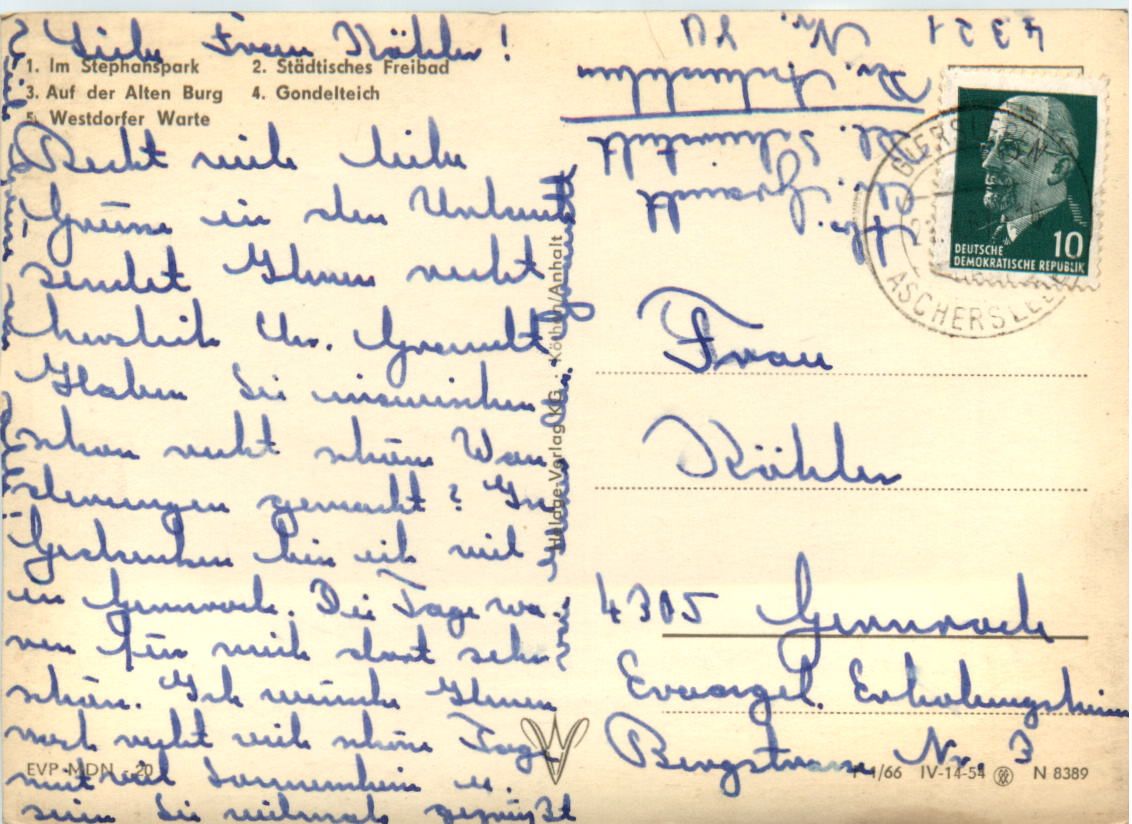 Liebe Frau Köhler!
1. Im Stephanspark 2. Städtisches Freibad
3. Auf der Alten Burg 4. Gondelteich
5. Westdorfer Warte
Recht viele liebe
Grüsse in den Urlaub
sendet Ihnen recht
herzlich Chr. Gramelt
Haben Sie inzwischen
schon recht schöne Wan
derungen gemacht? In
Gedanken bin ich viel
in Gernrode. Die Tage wa-
ren für mich dort sehr
schön. Ich wünsche Ihnen
noch recht viele schöne Tage
mit viel Sonnenschein u.
seien Sie vielmals gegrüßt
EVP MDN -.20
Halage-Verlag KG, Köthen/Anhalt
4321
Nr.
Kr. Aschersleben
DEUTSCHE
DEMOKRATISCHE REPUBLIK
10
ASCHERSLEBEN
Frau
Köhler
4305 Gernrode
Evangel. Erholungsheim
Bergstrasse Nr. 3
1/66 IV-14-54 N 8389